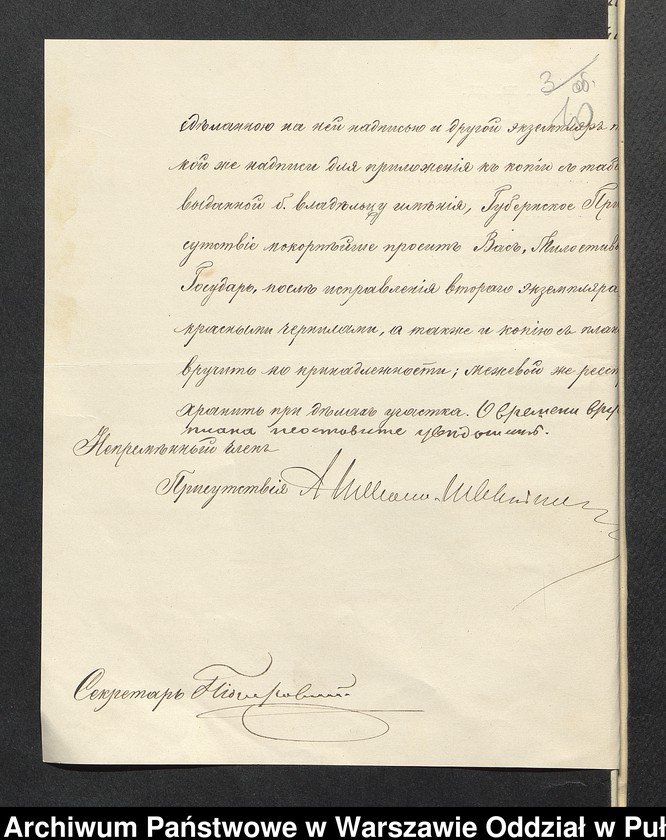 3 об.
10
сдѣланною на ней надписью и другой экземпляръ
кой же надписи для приложенія къ копіи съ таб
выданной б. владѣльцу имѣнія, Губернское При
сутствіе покорнѣйше проситъ Васъ, Милостив
Государь, послѣ исправленія второго экземпляра
красными чернилами, а также и копію съ план
вручить по принадлежности; межевой же реест
хранить при дѣлахъ участка. О времени вру
плана неоставьте увѣдомить.
Непремѣнный Членъ
Присутствія
Секретарь
Archiwum Państwowe w Warszawie Oddział w Puł